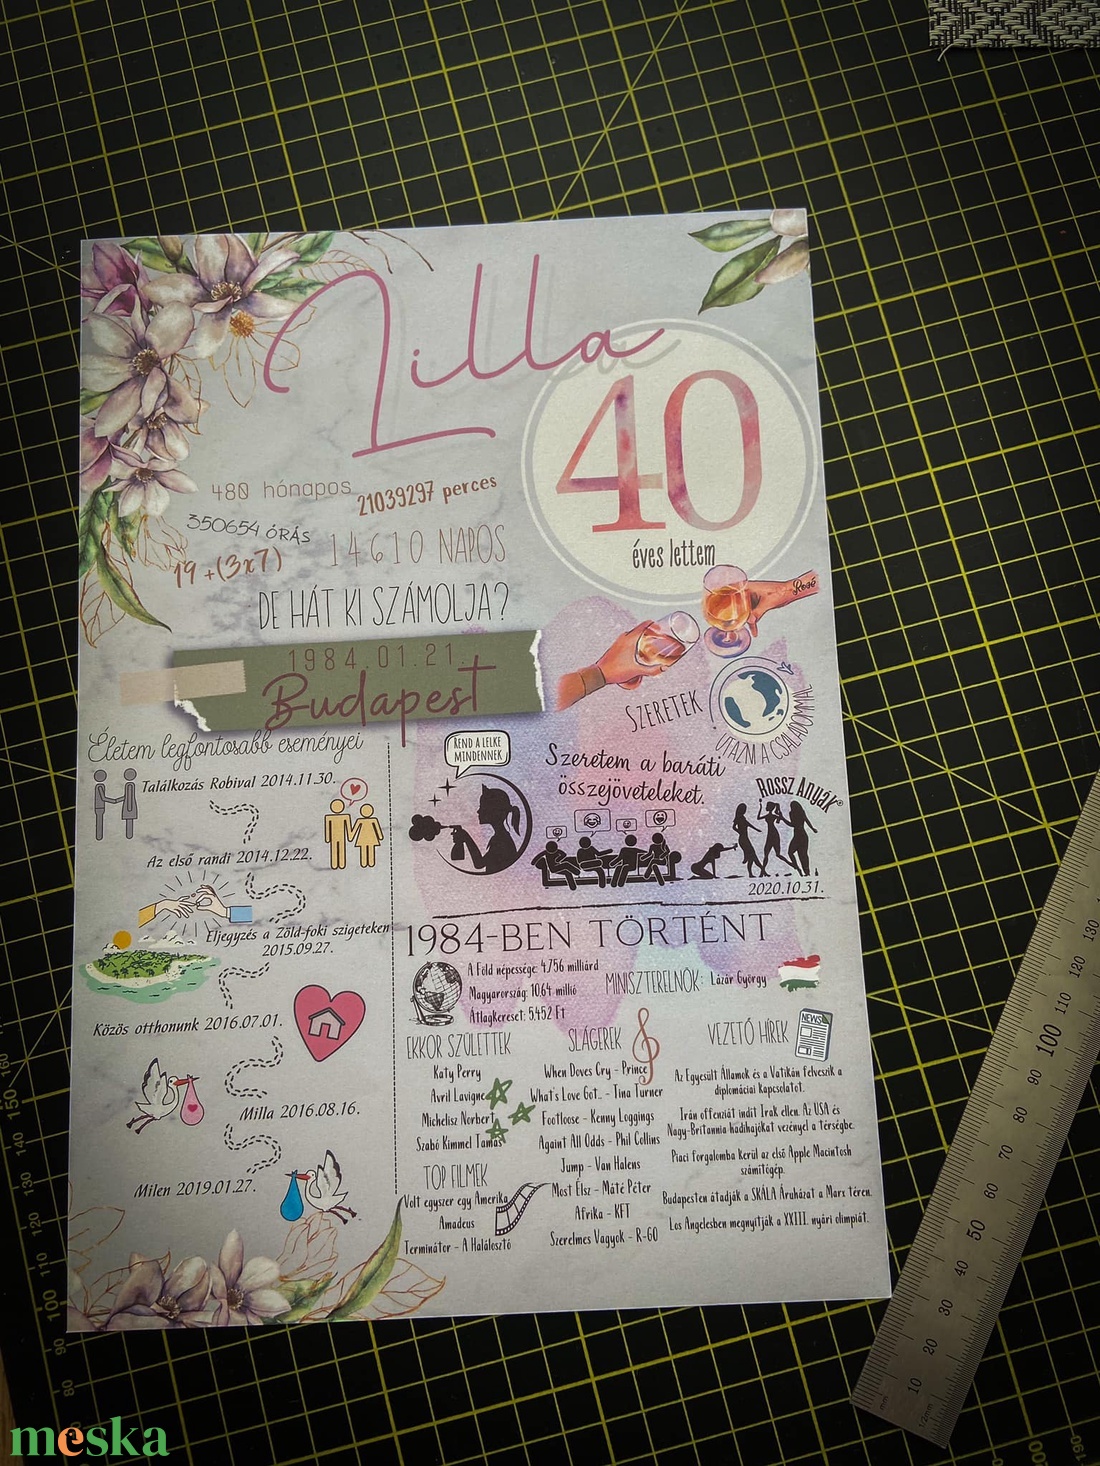 Lilla
40
éves lettem
480 hónapos
21039297 perces
350654 ÓRÁS
14610 NAPOS
19 +(3x7)
DE HÁT KI SZÁMOLJA?
1984.01.21.
Budapest
Rosé
SZERETEK
UTAZNI A CSALÁDOMMAL
Életem legfontosabb eseményei
Találkozás Robival 2014.11.30.
Az első randi 2014.12.22.
Eljegyzés a Zöld-foki szigeteken
2015.09.27.
Közös otthonunk 2016.07.01.
Milla 2016.08.16.
Milen 2019.01.27.
REND A LELKE
MINDENNEK
Szeretem a baráti
összejöveteleket.
Rossz Anyák®
2020.10.31.
1984-BEN TÖRTÉNT
A Föld népessége: 4,756 milliárd
Magyarország: 10.64 millió
Átlagkereset: 5.452 Ft
MINISZTERELNÖK: Lázár György
EKKOR SZÜLETTEK
Katy Perry
Avril Lavigne
Michelisz Norbert
Szabó Kimmel Tamás
TOP FILMEK
Volt egyszer egy Amerika
Amadeus
Terminátor - A Halálosztó
SLÁGEREK
When Doves Cry - Prince
What's Love Got.. - Tina Turner
Footlose - Kenny Loggings
Againt All Odds - Phil Collins
Jump - Van Halens
Most Élsz - Máté Péter
Afrika - KFT
Szerelmes Vagyok - R-GO
VEZETŐ HÍREK
NEWS
Az Egyesült Államok és a Vatikán felveszik a
diplomáciai kapcsolatot.
Irán offenzívát indít Irak ellen. Az USA és
Nagy-Britannia hadihajókat vezényel a térségbe.
Piaci forgalomba kerül az első Apple Macintosh
számítógép.
Budapesten átadják a SKÁLA Áruházat a Marx téren.
Los Angelesben megnyitják a XXIII. nyári olimpiát.
130
120
110
100
90
80
70
60
50
40
30
20
10
mm
1/2mm
160
150
140
130
120
110
100
90
80
200
190
meska